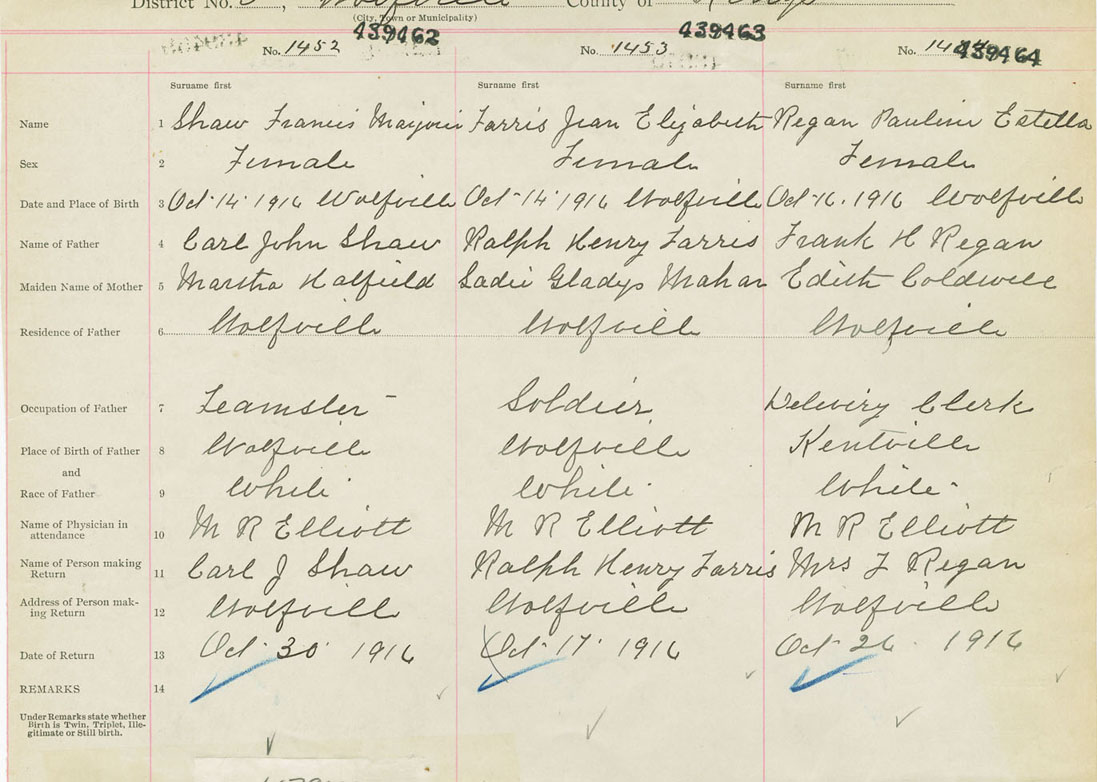 District No. Wolfville County of Kings
(City, Town or Municipality)
439462 439463 439464
No. 1452 No. 1453 No.
Surname first Surname first Surname first
Name 1 Shaw Francis Marjorie Farris Jean Elizabeth Regan Pauline Estella
Sex 2 Female Female Female
Date and Place of Birth 3 Oct 14 1916 Wolfville Oct 14 1916 Wolfville Oct 16. 1916 Wolfville
Name of Father 4 Carl John Shaw Ralph Henry Farris Frank H Regan
Maiden Name of Mother 5 Martha Hatfield Sadie Gladys Mahar Edith Coldwell
Residence of Father 6 Wolfville Wolfville Wolfville
Occupation of Father 7 Teamster Soldier Delivery Clerk
Place of Birth of Father 8 Wolfville Wolfville Kentville
and
Race of Father 9 White White White
Name of Physician in
attendance 10 M R Elliott M R Elliott M R Elliott
Name of Person making
Return 11 Carl J Shaw Ralph Henry Farris Mrs F Regan
Address of Person mak-
ing Return 12 Wolfville Wolfville Wolfville
Date of Return 13 Oct 30 1916 Oct 17 1916 Oct 26 1916
REMARKS 14
Under Remarks state whether
Birth is Twin, Triplet, Ille-
gitimate or Still birth.